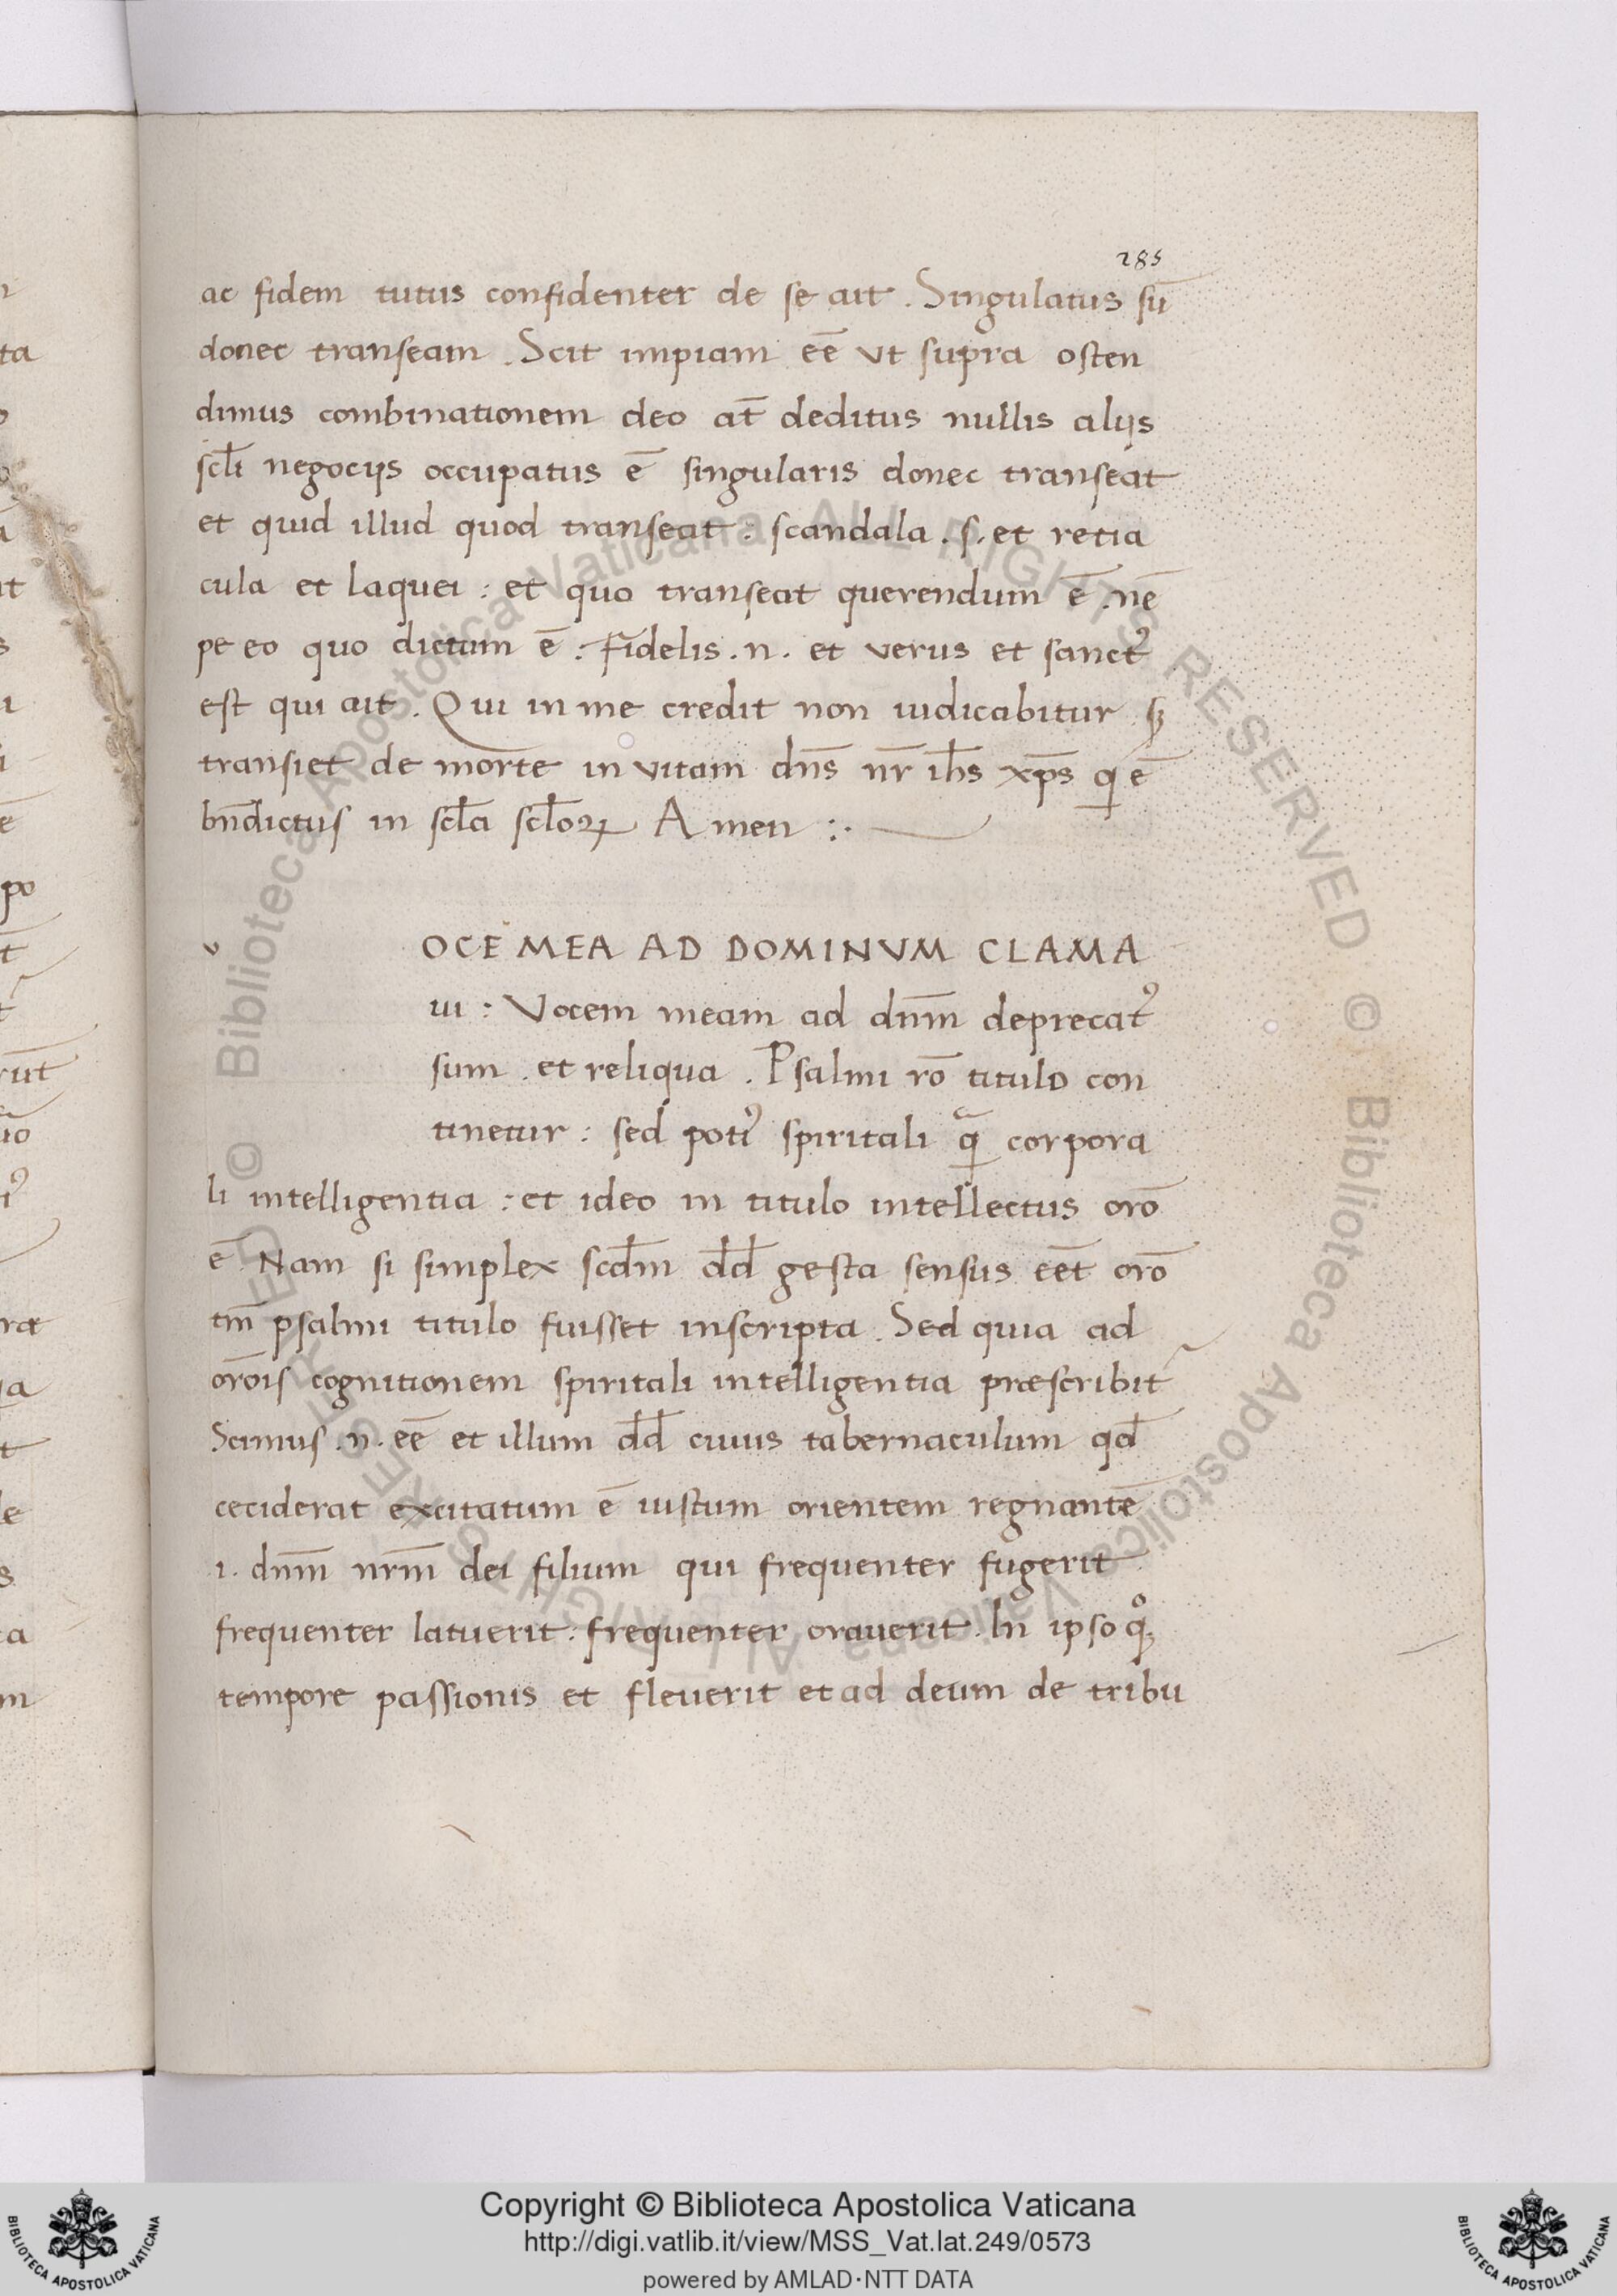 285
ac fidem tutus confidenter de se ait . Singulatus sū
donec transeam . Scit impiam eē vt supra osten
dimus combinationem deo at̄ deditus nullis alijs
scl̄i negocijs occupatus ē singularis donec transeat
et quid illud quod transeat : scandala . s . et retia
cula et laquei : et quo transeat querendum ē . nē
pe eo quo dictum ē : Fidelis . n . et verus et sanctꝰ
est qui ait . Qui in me credit non iudicabitur sꝫ
transiet de morte in vitam dn̄s nr̄ ih̄s xp̄s qͥ ē
bn̄dictus in scl̄a scl̄oꝝ Amen :·
v
OCE MEA AD DOMINVM CLAMA
ui : Vocem meam ad dn̄m deprecatꝰ
sum . et reliqua . Psalmi rō titulo con
tinetur : sed potiꝰ spiritali qᷓ corpora
li intelligentia : et ideo in titulo intellectus orō
ē Nam si simplex scd̄m dd̄ gesta sensus eēt orō
tm̄ psalmi titulo fuisset inscripta . Sed quia ad
orōis cognitionem spiritali intelligentia præscribit᷑
Scimus . n . eē et illum dd̄ cuius tabernaculum qd̄
ceciderat excitatum ē iustum orientem regnantē
i . dn̄m nrm̄ dei filium qui frequenter fugerit
frequenter latuerit : frequenter orauerit . In ipso qͦꝫ
tempore passionis et fleuerit et ad deum de tribu
Copyright © Biblioteca Apostolica Vaticana
http://digi.vatlib.it/view/MSS_Vat.lat.249/0573
powered by AMLAD·NTT DATA
BIBLIOTECA APOSTOLICA VATICANA
BIBLIOTECA APOSTOLICA VATICANA
© Biblioteca Apostolica Vaticana ALL RIGHTS RESERVED
© Biblioteca Apostolica Vaticana ALL RIGHTS RESERVED